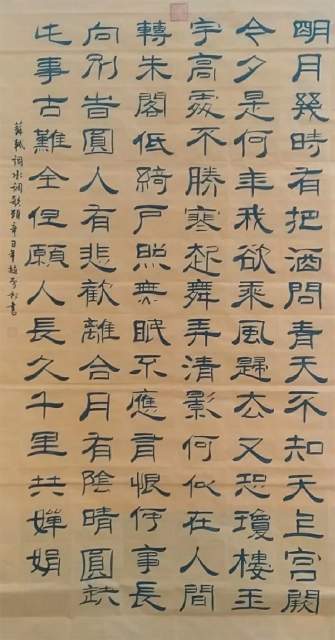 明月幾時有把酒問青天不知天上宮闕
今夕是何年我欲乘風歸去又恐瓊樓玉
宇高處不勝寒起舞弄清影何似在人間
轉朱閣低綺戶照無眠不應有恨何事長
向別旹圓人有悲歡離合月有陰晴圓缺
此事古難全但願人長久千里共嬋娟
蘇軾詞水調歌頭辛丑年書